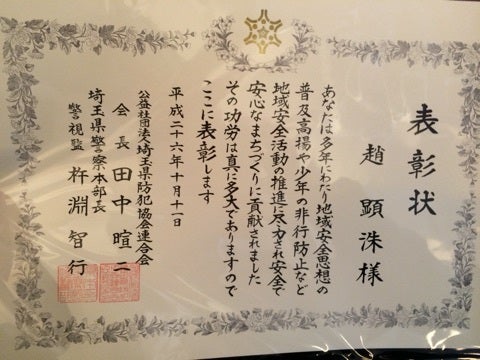 表彰状
趙顕洙様
あなたは多年にわたり地域安全思想の
普及高揚や少年の非行防止など
地域安全活動の推進に尽力され安全で
安心なまちづくりに貢献されました
その功労は真に多大でありますので
ここに表彰します
平成二十六年十月十一日
公益社団法人埼玉県防犯協会連合会
会長 田中暄二
埼玉県警察本部長
警視監 杵淵智行